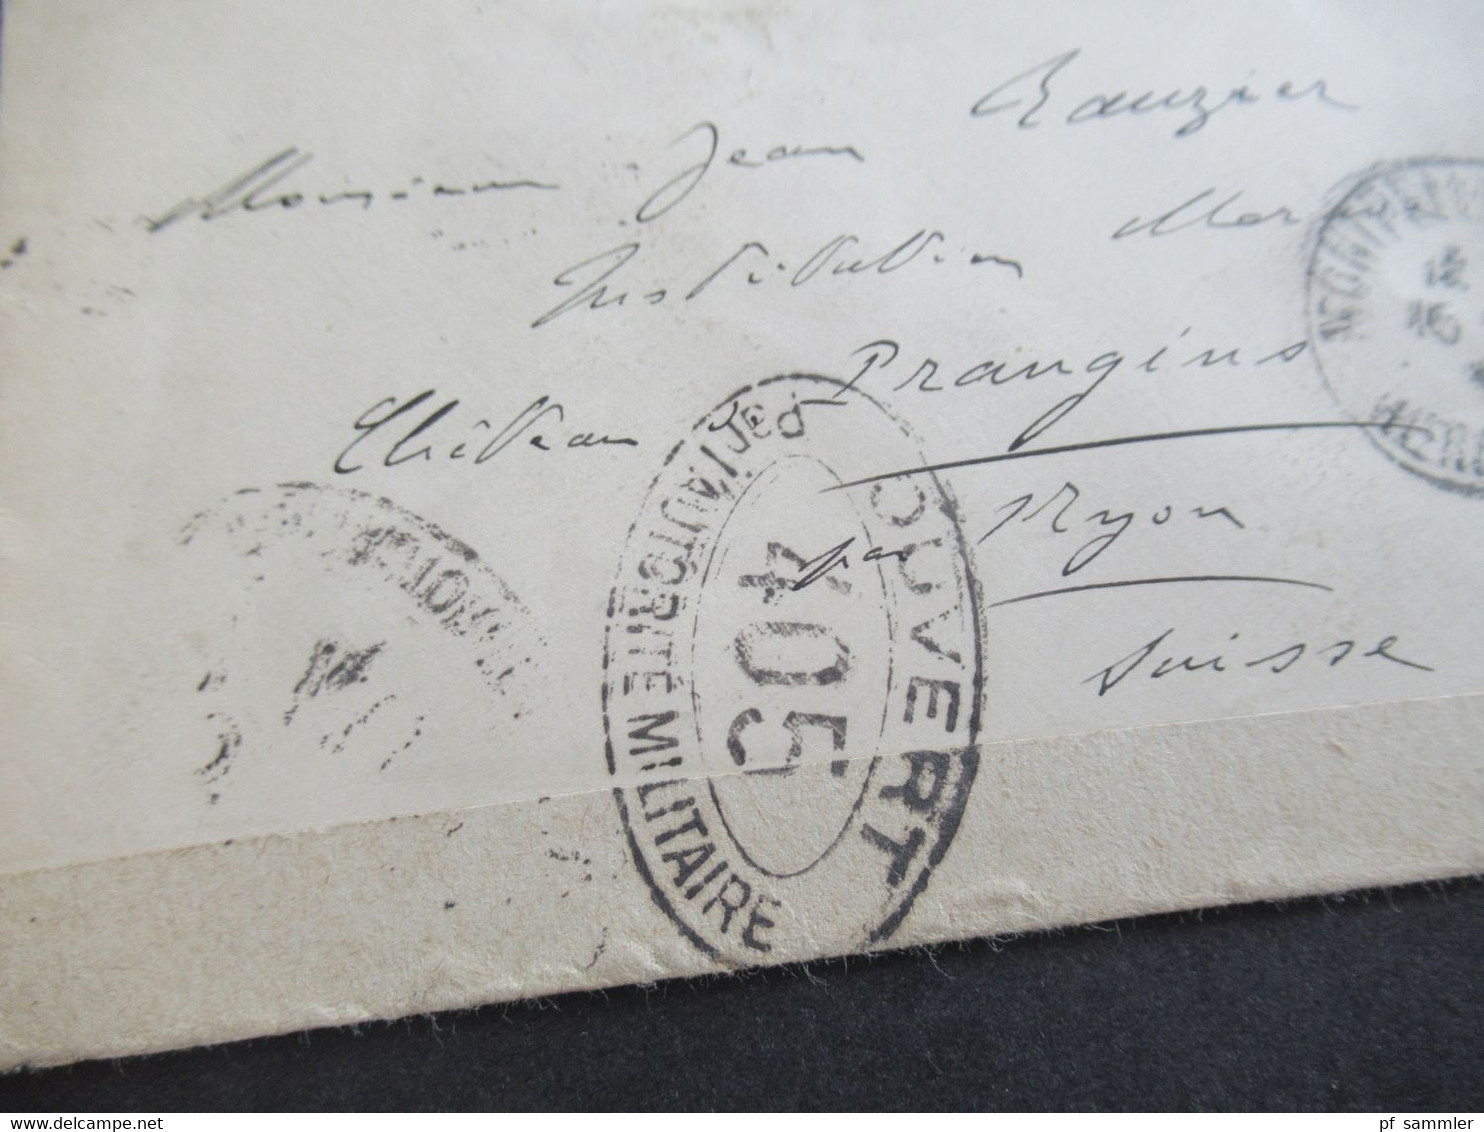 Monsieur Jean Rauzier
Institution
Château de Prangins
par Nyon
Suisse
OUVERT
PAR L'AUTORITÉ MILITAIRE
405
pf sammler